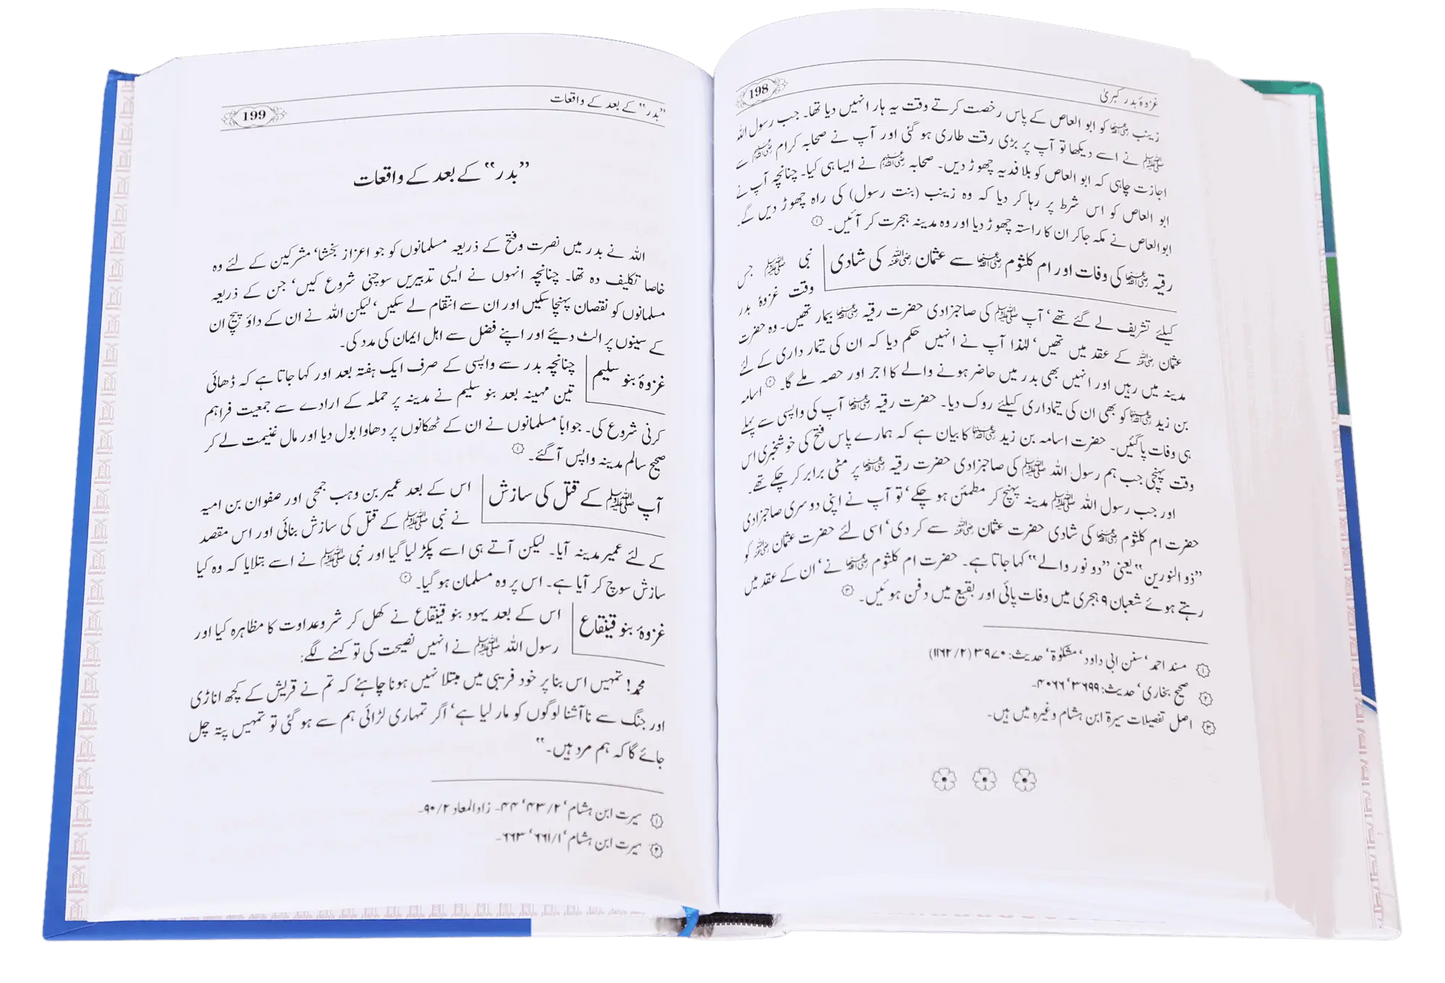 غزوۂ بدر کبریٰ 198
زینب رضی اللہ عنہا کو ابو العاص کے پاس رخصت کرتے وقت یہ ہار انہیں دیا تھا۔ جب رسول اللہ
ﷺ نے اسے دیکھا تو آپ پر بڑی رقت طاری ہو گئی اور آپ نے صحابہ کرام رضی اللہ عنہم سے
اجازت چاہی کہ ابو العاص کو بلا فدیہ چھوڑ دیں۔ صحابہ رضی اللہ عنہم نے ایسا ہی کیا۔ چنانچہ آپ نے
ابو العاص کو اس شرط پر رہا کر دیا کہ وہ زینب (بنت رسول) کی راہ چھوڑ دیں گے۔
ابوالعاص نے مکہ جاکر ان کا راستہ چھوڑ دیا اور وہ مدینہ ہجرت کر آئیں۔ ①
رقیہ رضی اللہ عنہا کی وفات اور ام کلثوم رضی اللہ عنہا سے عثمان رضی اللہ عنہ کی شادی
نبی ﷺ جس
وقت غزوۂ بدر
کیلئے تشریف لے گئے تھے‘ آپ ﷺ کی صاحبزادی حضرت رقیہ رضی اللہ عنہا بیمار تھیں۔ وہ حضرت
عثمان رضی اللہ عنہ کے عقد میں تھیں‘ لہٰذا آپ نے انہیں حکم دیا کہ ان کی تیمار داری کے لئے
مدینہ میں رہیں اور انہیں بھی بدر میں حاضر ہونے والے کا اجر اور حصہ ملے گا۔ ② اسامہ
بن زید رضی اللہ عنہ کو بھی ان کی تیماداری کیلئے روک دیا۔ حضرت رقیہ رضی اللہ عنہا آپ کی واپسی سے پہلے
ہی وفات پاگئیں۔ حضرت اسامہ بن زید رضی اللہ عنہ کا بیان ہے کہ ہمارے پاس فتح کی خوشخبری اس
وقت پہنچی جب ہم رسول اللہ ﷺ کی صاحبزادی حضرت رقیہ رضی اللہ عنہا پر مٹی برابر کر چکے تھے۔
اور جب رسول اللہ ﷺ مدینہ پہنچ کر مطمئن ہو چکے‘ تو آپ نے اپنی دوسری صاحبزادی
حضرت ام کلثوم رضی اللہ عنہا کی شادی حضرت عثمان رضی اللہ عنہ سے کر دی‘ اسی لئے حضرت عثمان رضی اللہ عنہ کو
”ذوالنورین“ یعنی ”دو نور والے“ کہا جاتا ہے۔ حضرت ام کلثوم رضی اللہ عنہا نے‘ ان کے عقد میں
رہتے ہوئے شعبان ۹ ہجری میں وفات پائی اور بقیع میں دفن ہوئیں۔ ③
① مسند احمد‘ سنن ابی داود‘ مشکوٰۃ‘ حدیث: ۳۹۷۰ (۱۱۶۲/۲)
② صحیح بخاری‘ حدیث: ۳۶۹۹‘ ۴۰۶۶۔
③ اصل تفصیلات سیرۃ ابن ہشام وغیرہ میں ہیں۔
”بدر“ کے بعد کے واقعات 199
”بدر“ کے بعد کے واقعات
اللہ نے بدر میں نصرت و فتح کے ذریعہ مسلمانوں کو جو اعزاز بخشا‘ مشرکین کے لئے وہ
خاصا تکلیف دہ تھا۔ چنانچہ انہوں نے ایسی تدبیریں سوچنی شروع کیں‘ جن کے ذریعہ
مسلمانوں کو نقصان پہنچا سکیں اور ان سے انتقام لے سکیں‘ لیکن اللہ نے ان کے داؤ پیچ ان
کے سینوں پر الٹ دیئے اور اپنے فضل سے اہل ایمان کی مدد کی۔
غزوۂ بنو سلیم
چنانچہ بدر سے واپسی کے صرف ایک ہفتہ بعد اور کہا جاتا ہے کہ ڈھائی
تین مہینہ بعد بنو سلیم نے مدینہ پر حملہ کے ارادے سے جمعیت فراہم
کرنی شروع کی۔ جواباً مسلمانوں نے ان کے ٹھکانوں پر دھاوا بول دیا اور مال غنیمت لے کر
صحیح سالم مدینہ واپس آگئے۔ ①
آپ ﷺ کے قتل کی سازش
اس کے بعد عمیر بن وہب جمحی اور صفوان بن امیہ
نے نبی ﷺ کے قتل کی سازش بنائی اور اس مقصد
کے لئے عمیر مدینہ آیا۔ لیکن آتے ہی اسے پکڑ لیا گیا اور نبی ﷺ نے اسے بتلایا کہ وہ کیا
سازش سوچ کر آیا ہے۔ اس پر وہ مسلمان ہو گیا۔ ②
غزوۂ بنو قینقاع
اس کے بعد یہود بنو قینقاع نے کھل کر شر و عداوت کا مظاہرہ کیا اور
رسول اللہ ﷺ نے انہیں نصیحت کی تو کہنے لگے:
محمد! تمہیں اس بنا پر خود فریبی میں مبتلا نہیں ہونا چاہئے کہ تم نے قریش کے کچھ اناڑی
اور جنگ سے ناآشنا لوگوں کو مار لیا ہے‘ اگر تمہاری لڑائی ہم سے ہو گئی تو تمہیں پتہ چل
جائے گا کہ ہم مرد ہیں۔“
① سیرت ابن ہشام‘ ۴۳/۲‘ ۴۴۔ زادالمعاد ۹۰/۲۔
② سیرت ابن ہشام‘ ۶۶۱/۱‘ ۶۶۳۔